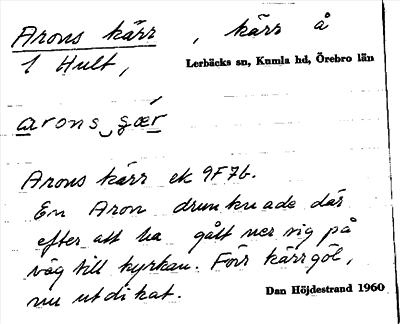 Arons kärr, kärr å
1 Hult,
Lerbäcks sn, Kumla hd, Örebro län
arons ɕǽr
Arons kärr ek 9F7b.
En Aron drunknade där
efter att ha gått ner sig på
väg till kyrkan. Förr kärrgöl,
nu utdikat.
Dan Höjdestrand 1960